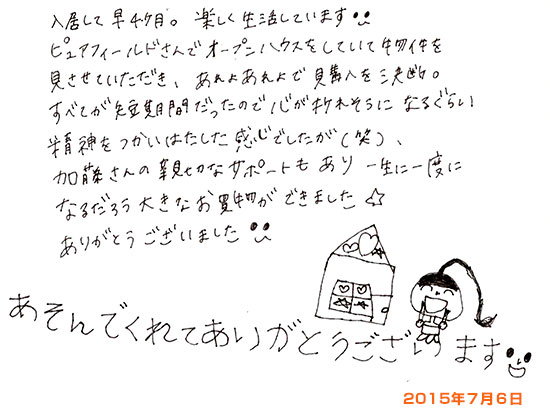 入居して早4ヶ月。楽しく生活しています
ピュアフィールドさんでオープンハウスをしていて物件を
見させていただき、あれよあれよで見購入を決断。
すべてが短期間だったので心が折れそうになるぐらい
精神をつかいはたした感じでしたが(笑)、
加藤さんの親切なサポートもあり一生に一度に
なるだろう大きなお買物ができました☆
ありがとうございました
あそんでくれてありがとうございます
2015年7月6日